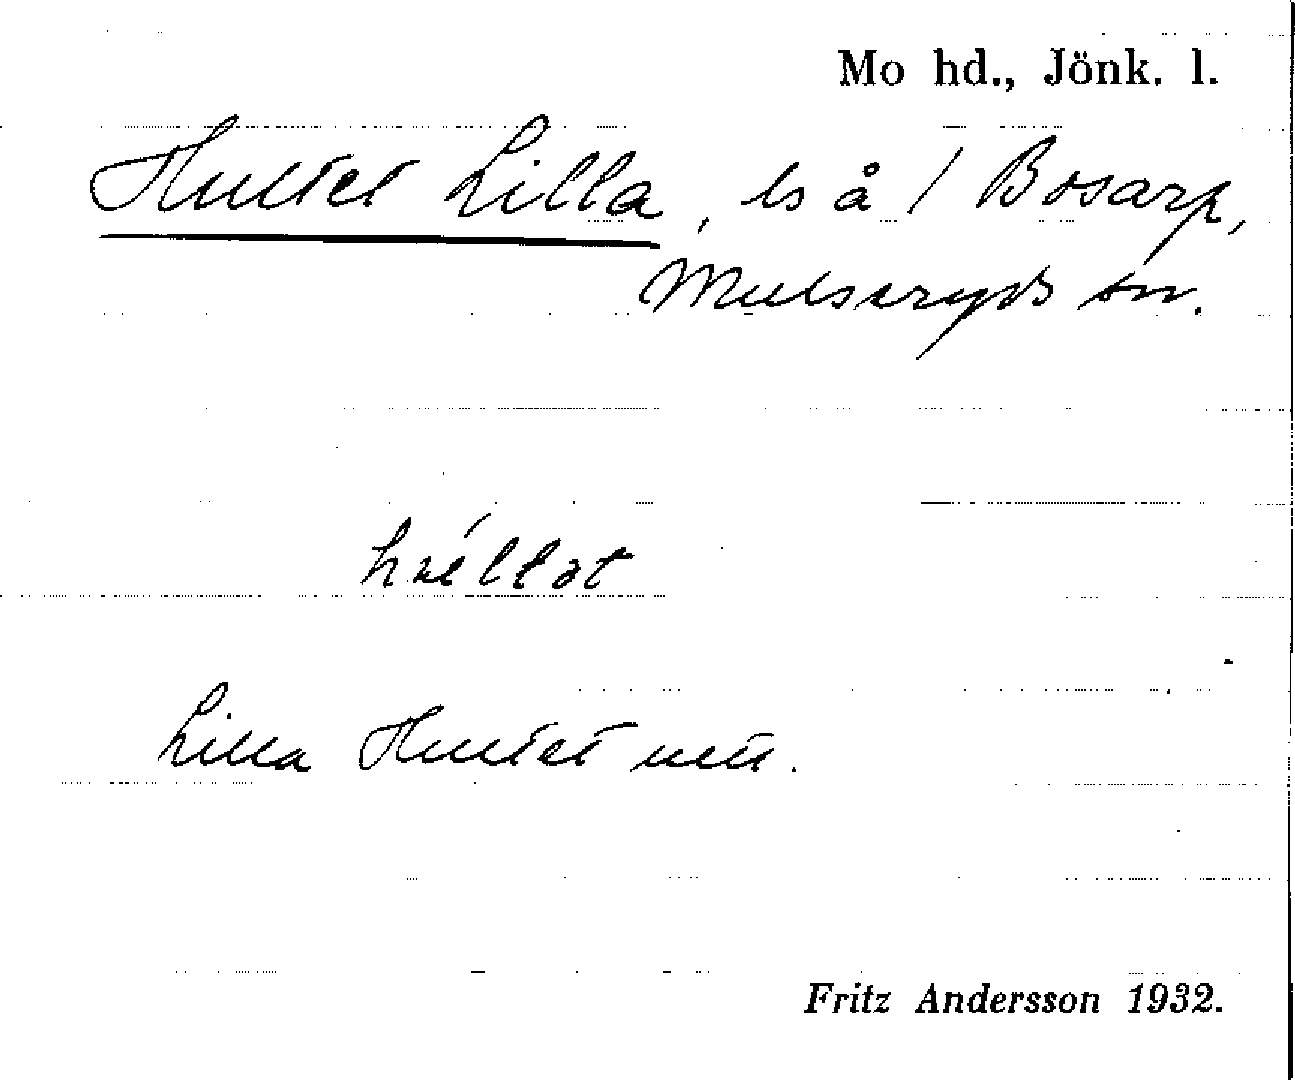 Mo hd., Jönk. l.
Hultet Lilla, ls å 1 Bosarp,
Mulseryds sn.
Lilla Hultet utt.
Fritz Andersson 1932.